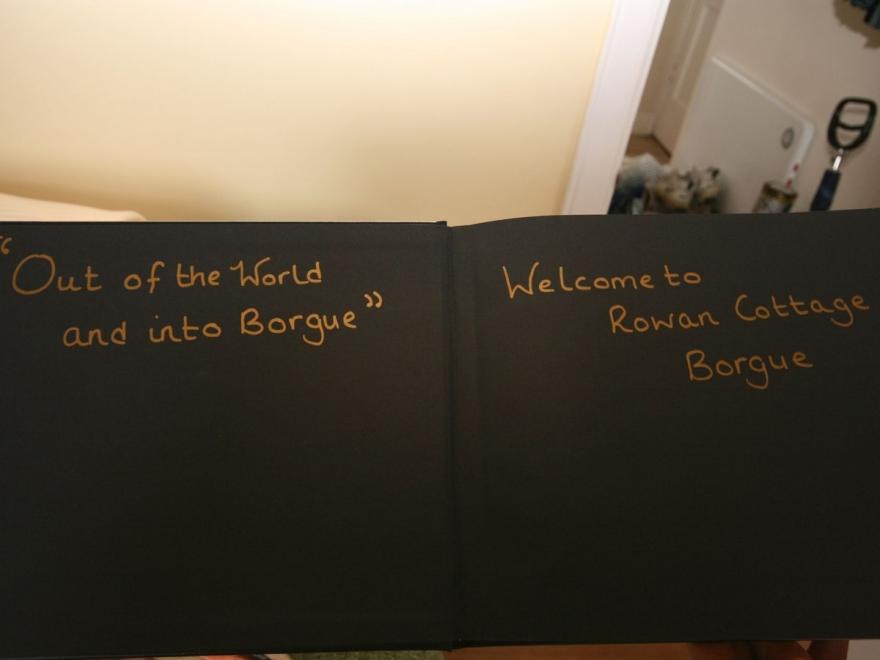 "Out of the World
and into Borgue"
Welcome to
Rowan Cottage
Borgue